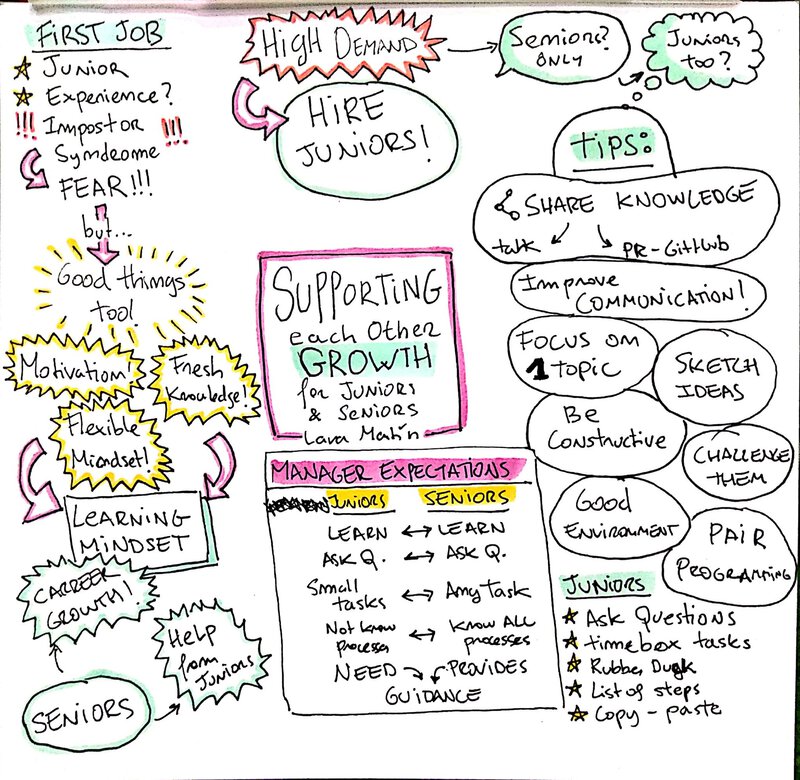 FIRST JOB
Junior
Experience?
!!! Impostor !!!
Symdrome
FEAR!!!
but...
Good things
too!
Motivation!
Fresh
Knowledge!
Flexible
Mimdset!
LEARNING
MINDSET
CAREER
GROWTH!
Help
from
Juniors
SENIORS
HIGH DEMAND
HIRE
JUNIORS!
Semiors?
ONLY
JUNIORS
too?
SUPPORTING
each Other
GROWTH
for JUNIORS
& SENIORS
Lara Martín
MANAGER EXPECTATIONS
JUNIORS SENIORS
LEARN ↔ LEARN
ASK Q. ↔ ASK Q.
Small
tasks ↔ Amy Task
Not know
processes ↔ KNOW ALL
processes
NEED PROVIDES
GUIDANCE
TIPS:
SHARE KNOWLEDGE
talk PR-GitHub
Improve
COMMUNICATION!
FOCUS ON
1 topic
SKETCH
IDEAS
Be
Constructive
CHALLENGE
THEM
Good
ENVIRONMENT
PAIR
PROGRAMMING
JUNIORS
Ask Questions
timebox tasks
Rubber Duck
List of steps
Copy-paste